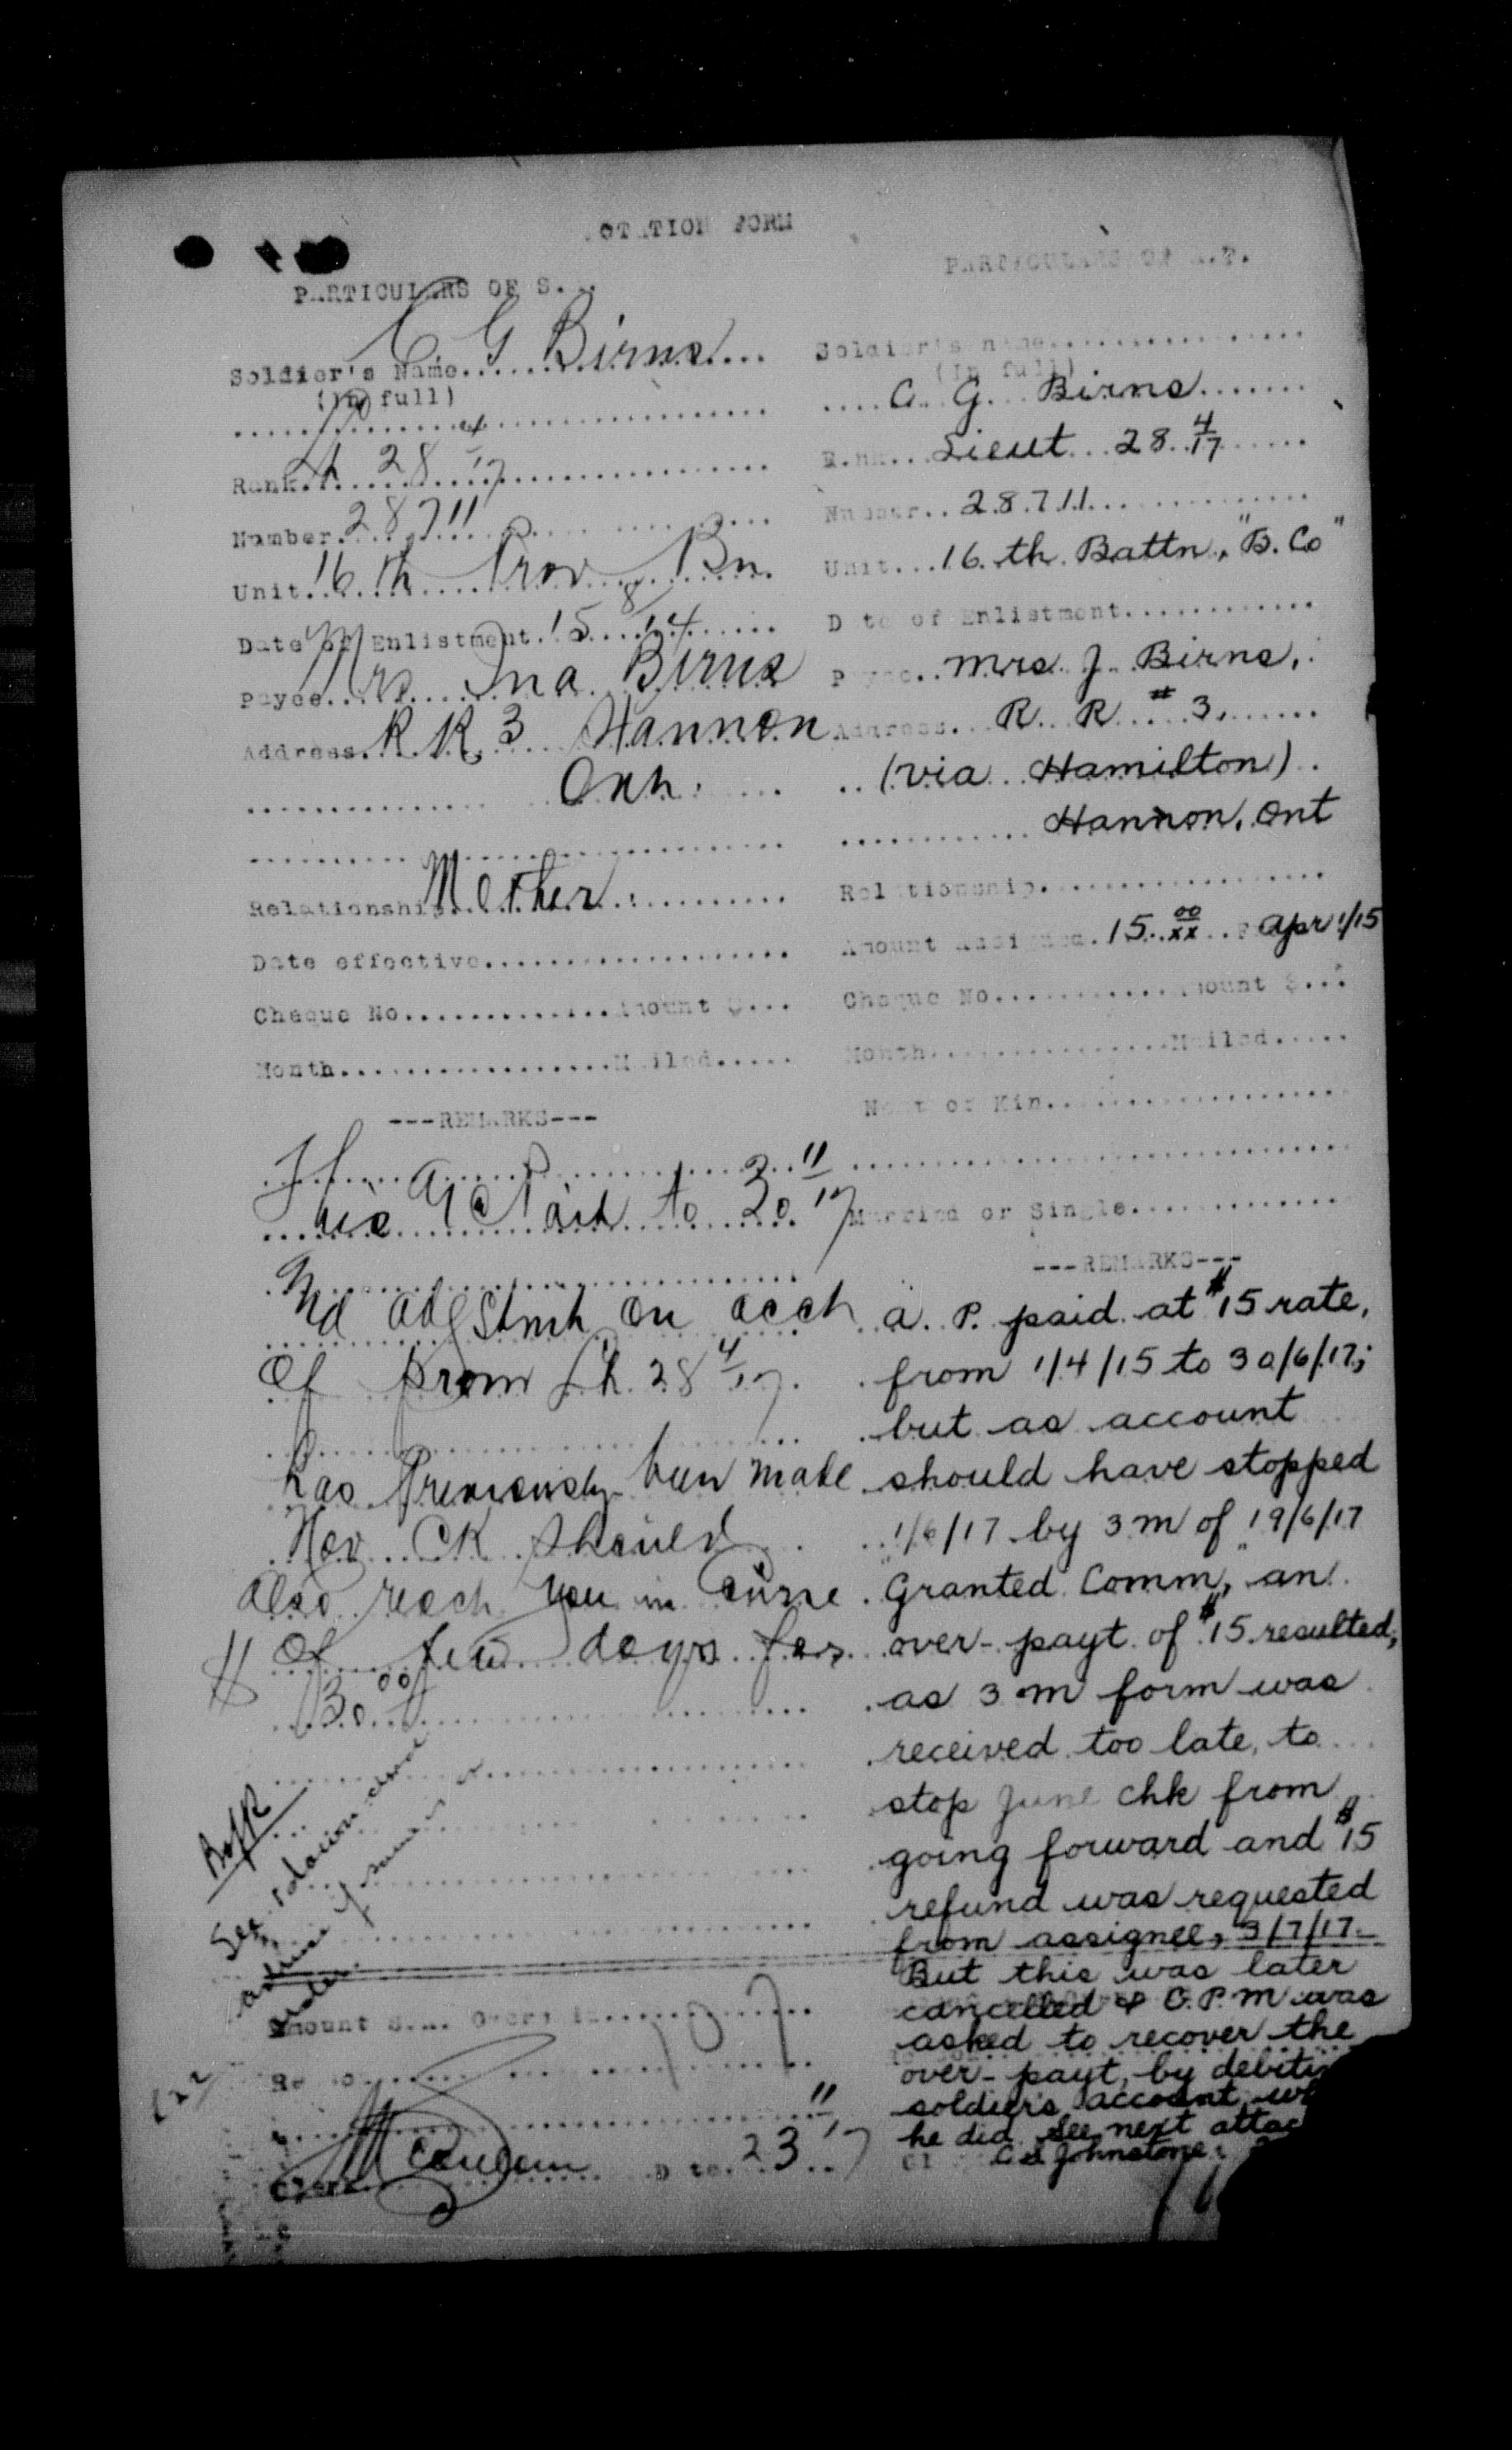 OTATION FORM
PARTICULARS OF S...
Soldier's Name C G Birns
(In full)
Rank Lt 28 4/17
Number 28711
Unit 16 th Prov Bn
Date of Enlistment 15 8/14
Payee Mrs Ina Birns
Address R R 3 Hannon
Ont.
Relationship Mother
Date effective
Cheque No. Amount $
Month Mailed
---REMARKS---
Paid to 30 11/17
adjstmt on acct
of prom Lt. 28 4/17
has previously been made
Nov. CK should
also reach you in
of few days for
$ 30 00
Amount S.A. Overp
Date 23 11/17
PARTICULARS OF A.P.
Soldier's name
(In full)
C. G. Birns
Rank Lieut 28 4/17
Number 28711
Unit 16 th Battn, "B. Co"
Date of Enlistment
Payee Mrs J. Birns,
Address R. R # 3,
(via Hamilton)
Hannon, Ont
Relationship
Amount Assigned 15 00/xx Apr 1/15
Cheque No. Amount $
Month Mailed
Next of Kin
Married or Single
---REMARKS---
a. P. paid at $15 rate,
from 1/4/15 to 30/6/17;
but as account
should have stopped
1/6/17 by 3 m of 19/6/17
"Granted Comm," an
over-payt. of $15 resulted,
as 3 m form was
received too late, to
stop June chk from
going forward and $15
refund was requested
from assignee, 3/7/17
But this was later
cancelled & O.P.M was
asked to recover the
over-payt, by debiti
soldier's account, wh
he did. See next attac
Cl C S Johnstone